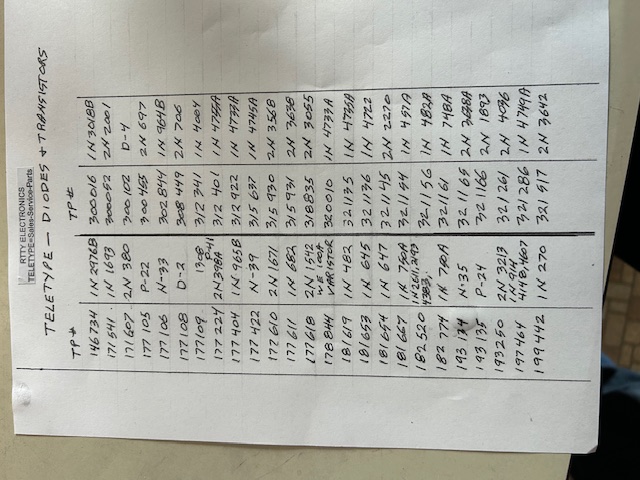 RTTY ELECTRONICS
TELETYPE=Sales-Service-Parts
TELETYPE — DIODES + TRANSISTORS
TP# TP#
146734 1N 2978B 300016 1N 3018B
171541 1N 1693 300052 2N 2001
171607 2N 380 300102 D-4
177105 P-22 300455 2N 697
177106 N-33 302844 1N 964B
177108 D-2 308449 2N 706
177109 312341 1N 4004
177224 2N398A 312401 1N 4735A
177404 1N 965B 312922 1N 4739A
177422 N-39 315637 1N 4745A
177610 2N 1671 315930 2N 3568
177611 1N 682 315931 2N 3638
177618 2N 1542 318835 2N 3055
WE 100A
178844 VARISTOR 320010 1N 4733A
181619 1N 482 321135 1N 4735A
181653 1N 645 321136 1N 4722
181654 1N 647 321145 2N 2270
181667 1N 750A 321154 1N 457A
182520 1N2611,2193 321156 1N 482A
4383,
182774 1N 750A 321161 1N 748A
193134 N-35 321165 2N 3638A
193135 P-24 321166 2N 1893
193250 2N 3213 321261 2N 4036
1N 914
197464 4148,4607 321286 1N 4749A
199442 1N 270 321517 2N 3642